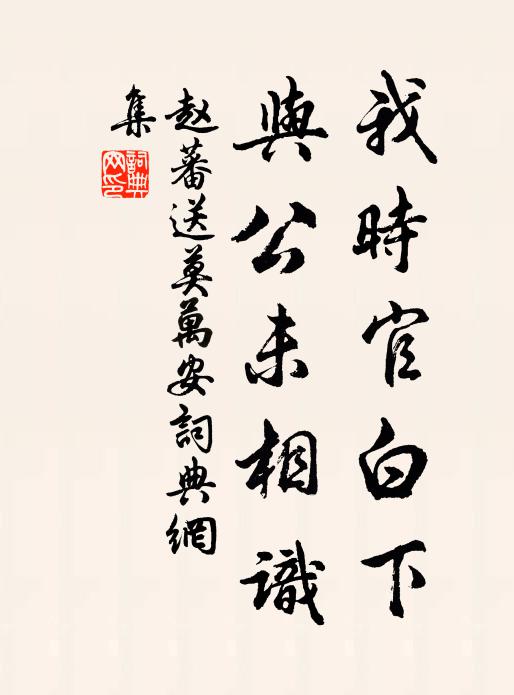 我時官白下
與公未相識
赵蕃送莫萬安詞典網
集
詞典网印